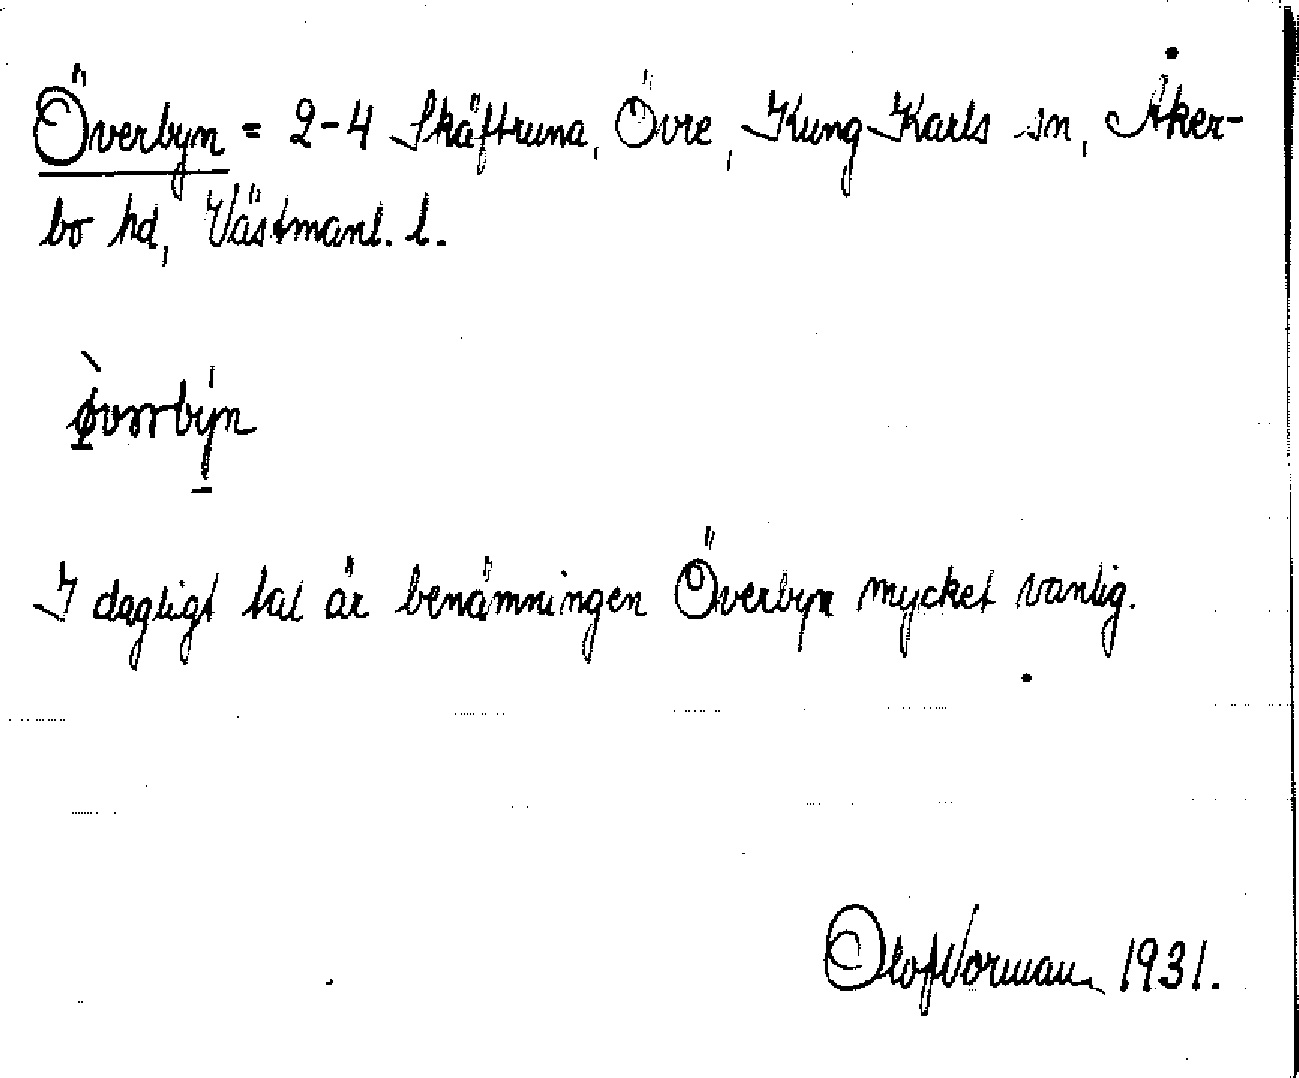 Överbyn = 2-4 Skäftruna, Övre, Kung Karls sn, Åker-
bo hd, Västmanl. l.
I dagligt tal är benämningen Överbyn mycket vanlig.
Olof Vorman 1931.